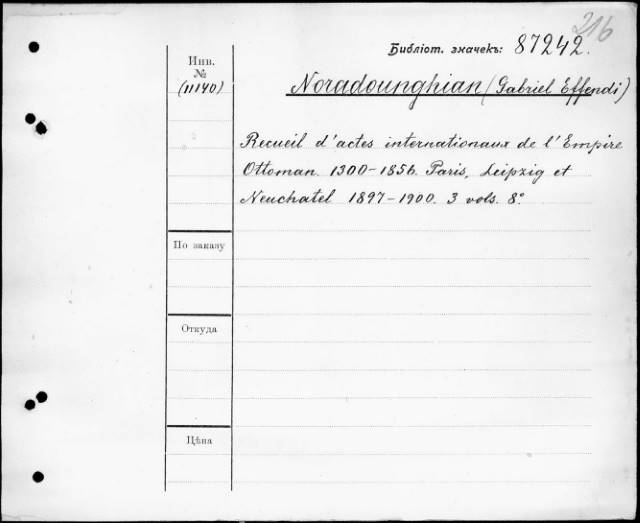 216
Библіот. значекъ: 87242.
Инв.
№
(11140)
Noradounghian (Gabriel Effendi)
Recueil d'actes internationaux de l'Empire
Ottoman. 1300-1856. Paris, Leipzig et
Neuchatel 1897-1900. 3 vols. 8°.
По заказу
Откуда
Цѣна